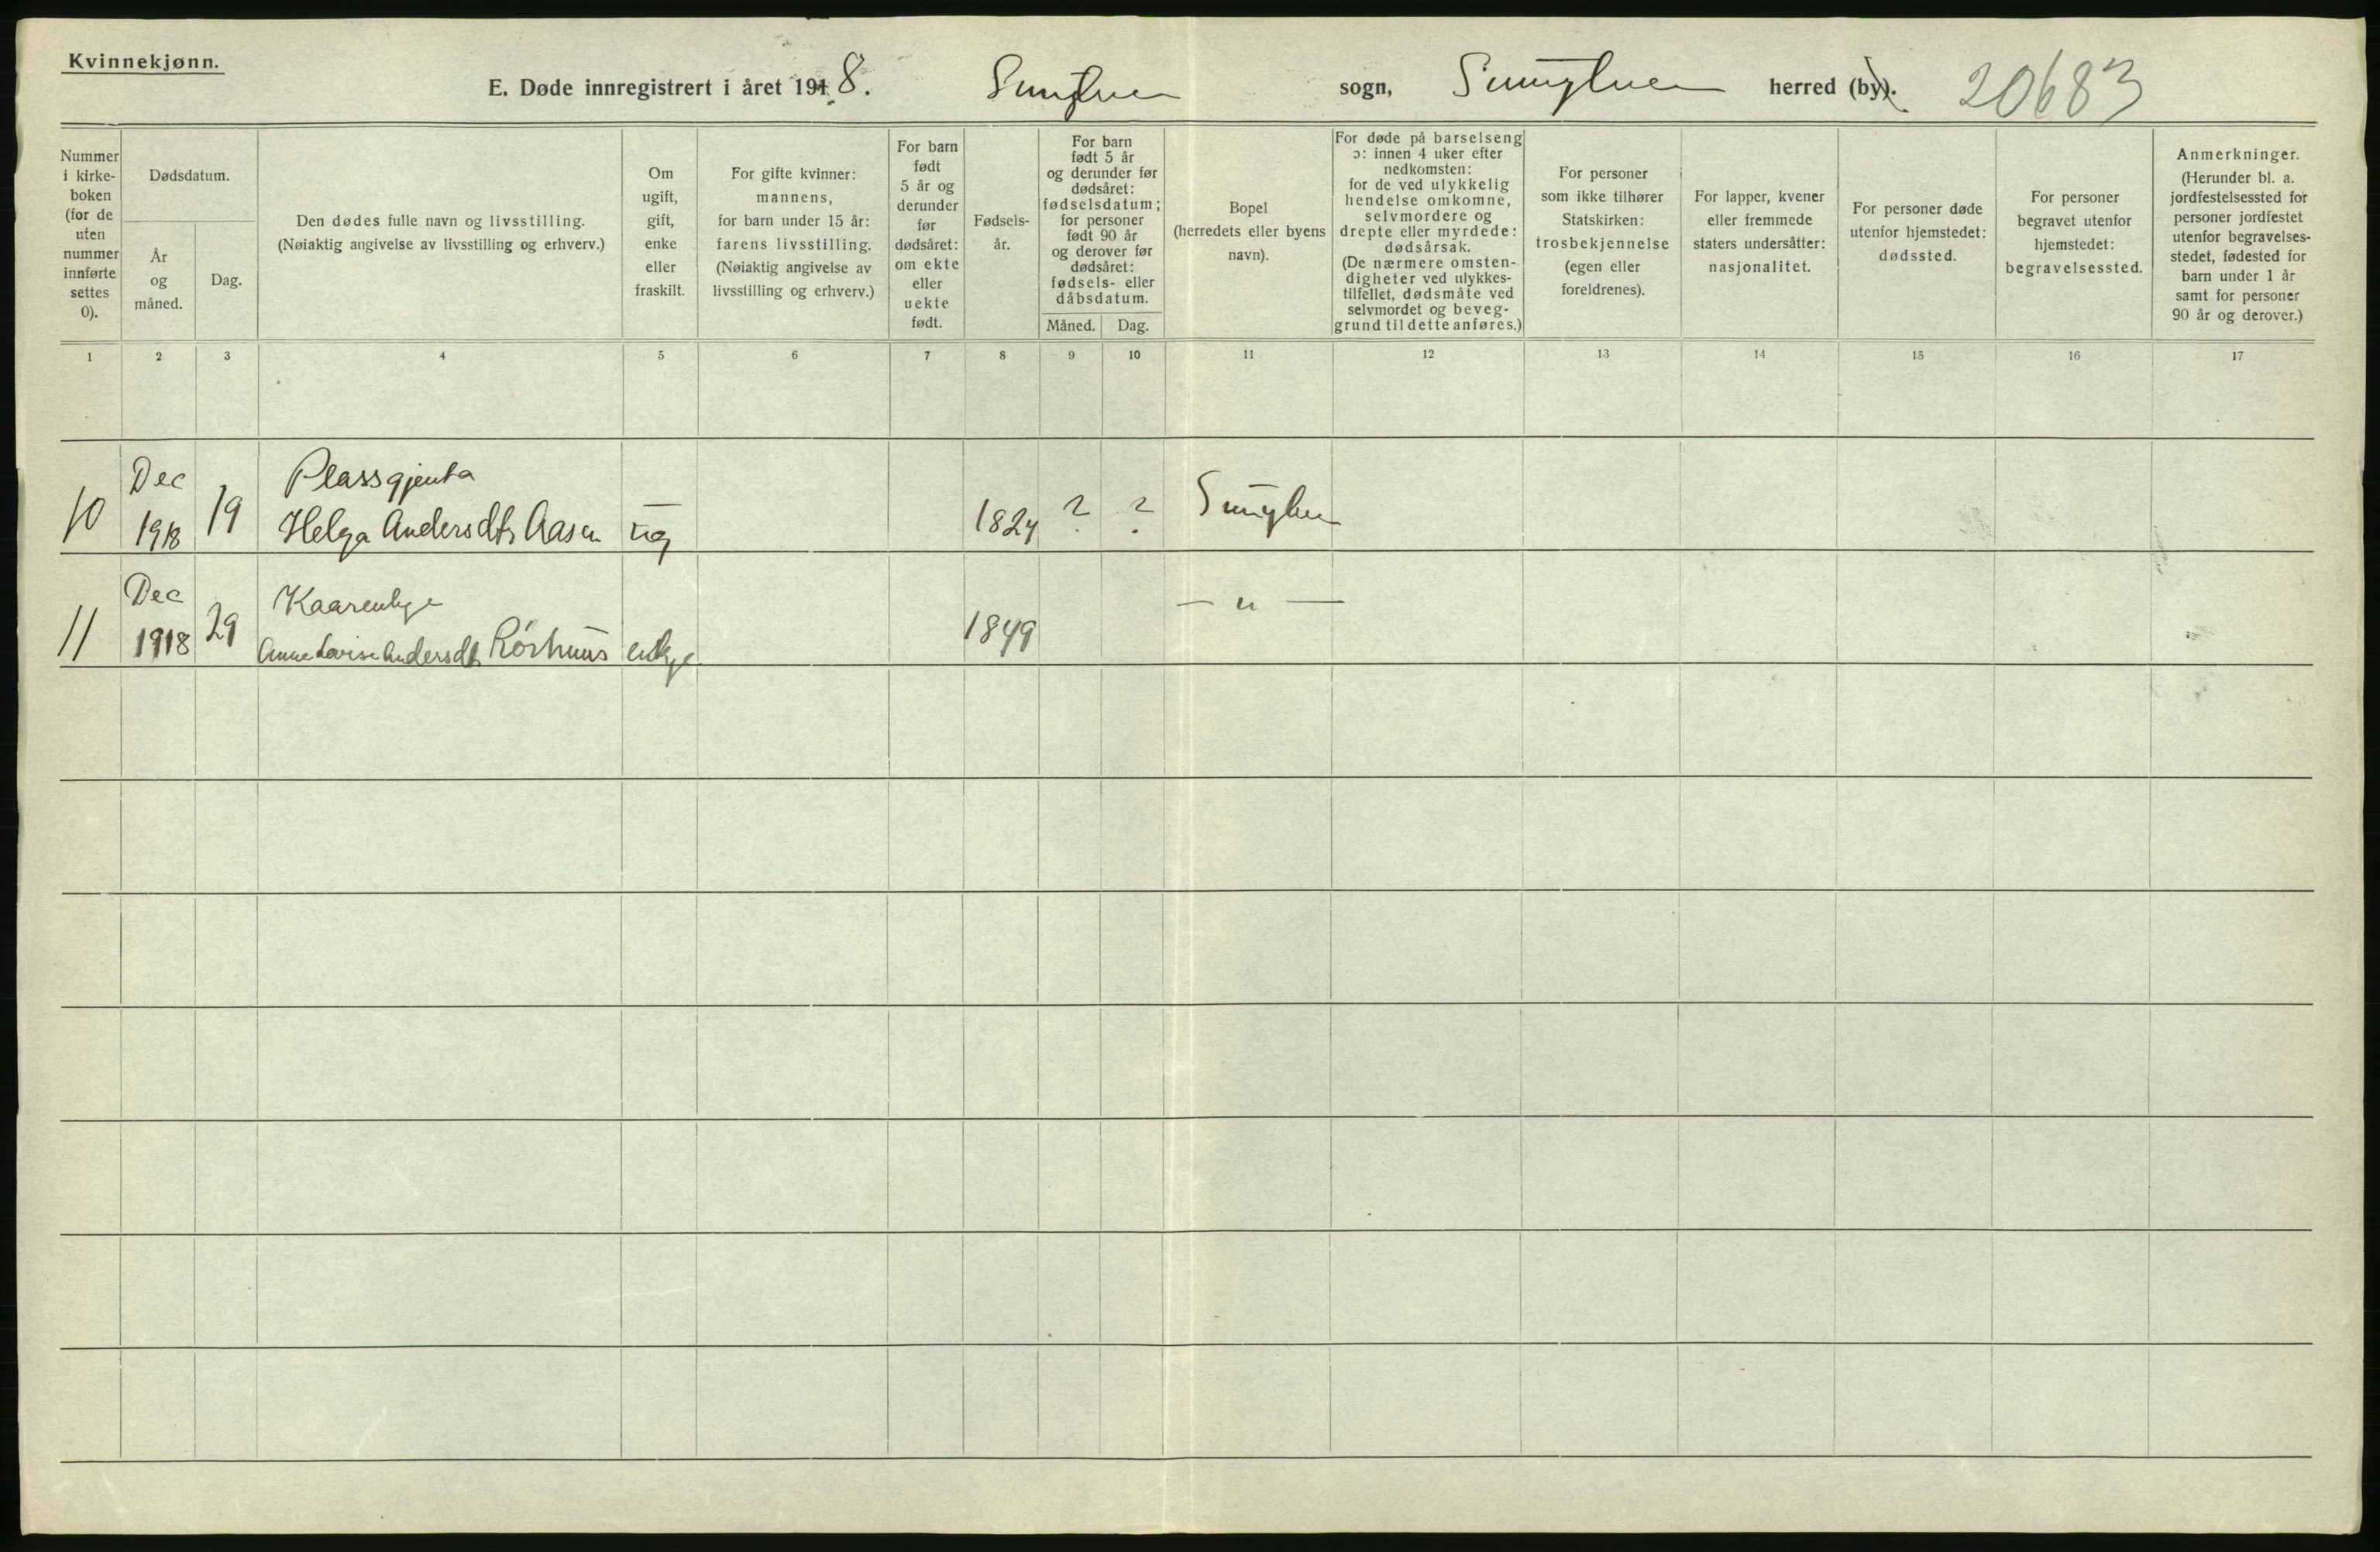 Kvinnekjønn.
E. Døde innregistrert i året 1918. sogn, herred (by). 20683
Nummer i kirke-boken (for de uten nummer innførte settes 0).
Dødsdatum.
År og måned.
Dag.
Den dødes fulle navn og livsstilling.
(Nøiaktig angivelse av livsstilling og erhverv.)
Om ugift, gift, enke eller fraskilt.
For gifte kvinner: mannens, for barn under 15 år: farens livsstilling. (Nøiaktig angivelse av livsstilling og erhverv.)
For barn født 5 år og derunder før dødsåret: om ekte eller uekte født.
Fødsels-år.
For barn født 5 år og derunder før dødsåret: fødselsdatum; for personer født 90 år og derover før dødsåret: fødsels- eller dåbsdatum.
Måned. Dag.
Bopel (herredets eller byens navn).
For døde på barselseng ɔ: innen 4 uker efter nedkomsten: for de ved ulykkelig hendelse omkomne, selvmordere og drepte eller myrdede: dødsårsak. (De nærmere omsten-digheter ved ulykkes-tilfellet, dødsmåte ved selvmordet og beveg-grund til dette anføres.)
For personer som ikke tilhører Statskirken: trosbekjennelse (egen eller foreldrenes).
For lapper, kvener eller fremmede staters undersåtter: nasjonalitet.
For personer døde utenfor hjemstedet: dødssted.
For personer begravet utenfor hjemstedet: begravelsessted.
Anmerkninger. (Herunder bl. a. jordfestelsessted for personer jordfestet utenfor begravelses-stedet, fødested for barn under 1 år samt for personer 90 år og derover.)
1 2 3 4 5 6 7 8 9 10 11 12 13 14 15 16 17
Dec Plassgjenta
10 1918 19 Helga Andersdtr Aasen ug 1824 ? ?
Dec Kaarenkje — " —
11 1918 29 Anne Lovise Andersdtr Rørhuus enkje 1849